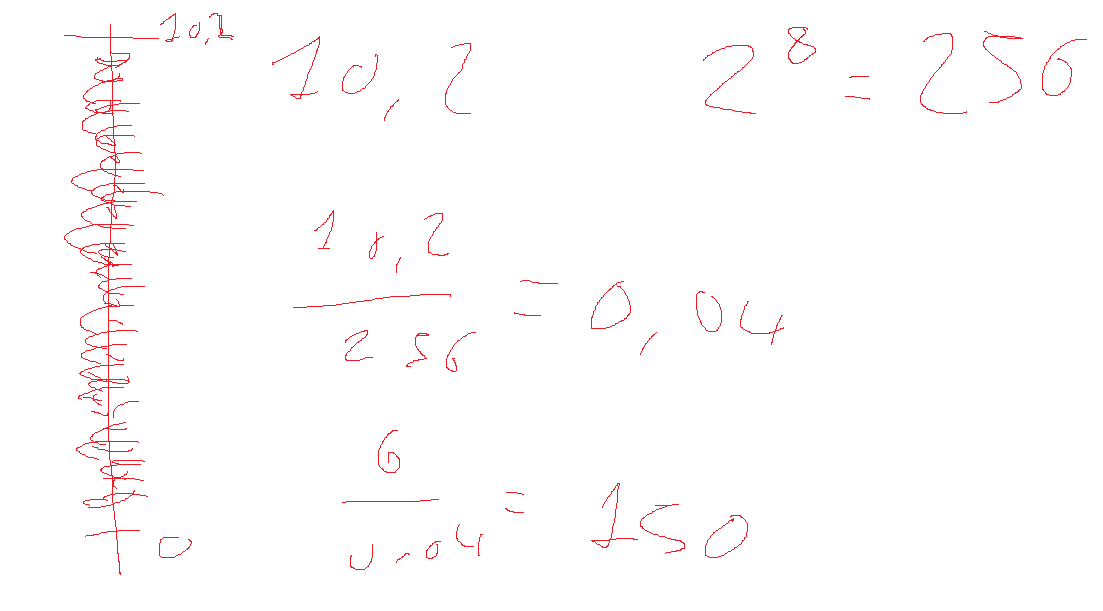 10,2
10,2 2⁸ = 256
10,2
256 = 0,04
6
0.04 = 150
0